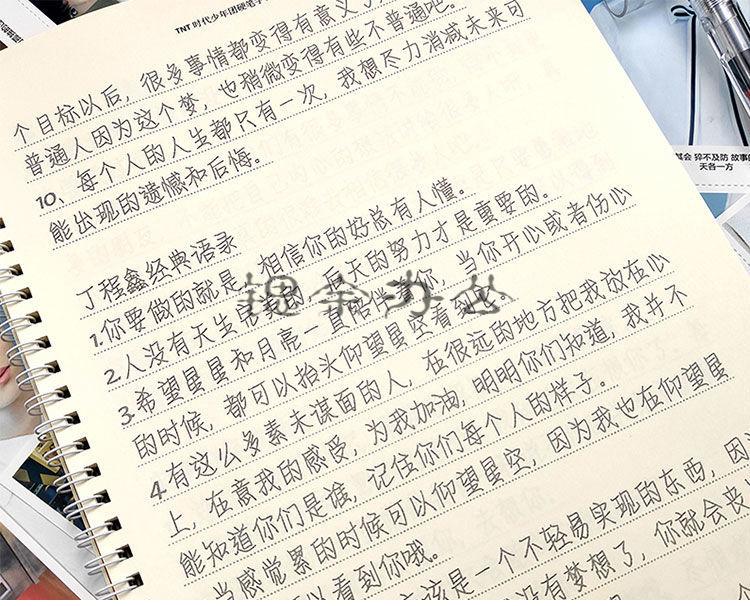 TNT 时代少年团硬笔字
个目标以后，很多事情都变得有意义了
普通人因为这个梦，也稍微变得有些不普通吧。
10、每个人的人生都只有一次，我想尽力消减未来可
能出现的遗憾和后悔。
丁程鑫经典语录
1.你要做的就是，相信你的好总有人懂。
2.人没有天生 后天的努力才是重要的。
3.希望星星和月亮一直陪 你，当你开心或者伤心
的时候，都可以抬头仰望星空看看
4.有这么多素未谋面的人，在很远的地方把我放在心
上，在意我的感受，为我加油，明明你们知道，我并不
能知道你们是谁，记住你们每个人的样子。
当感觉累的时候可以仰望星空，因为我也在仰望星
以看到你哦。
该是一个不轻易实现的东西，因
没有梦想了，你就会丧
猝不及防 故事的
天各一方